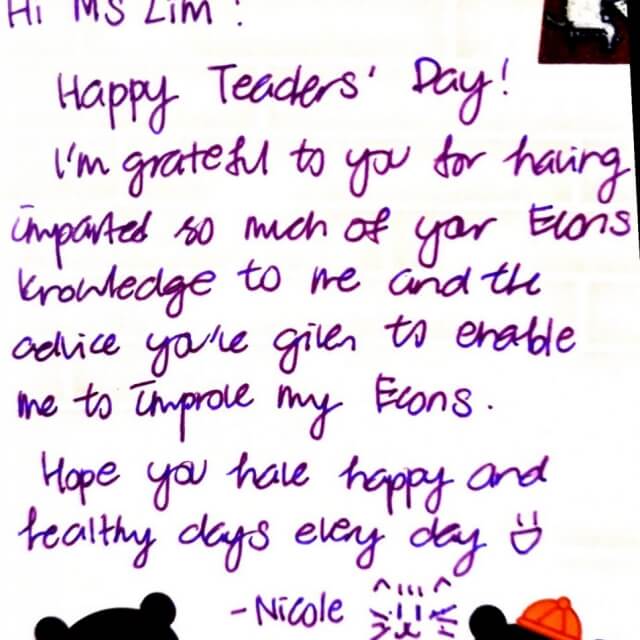 Hi Ms Lim :
Happy Teachers' Day!
I'm grateful to you for having
imparted so much of your Econs
knowledge to me and the
advice you've given to enable
me to improve my Econs.
Hope you have happy and
healthy days every day
-Nicole